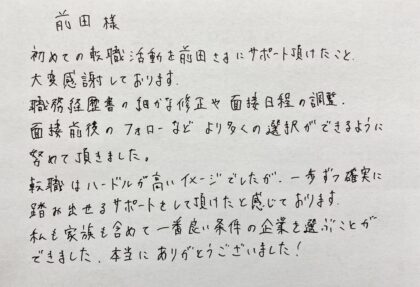 前田様
初めての転職活動を前田さまにサポート頂けたこと、
大変感謝しております。
職務経歴書の細かな修正や面接日程の調整、
面接前後のフォローなどより多くの選択ができるように
努めて頂きました。
転職はハードルが高いイメージでしたが、一歩ずつ確実に
踏み出せるサポートをして頂けたと感じております。
私も家族も含めて一番良い条件の企業を選ぶことが
できました。本当にありがとうございました!